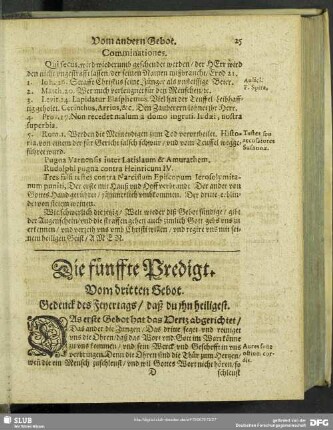 Vom andern Gebot. 25
Comminationes.
Qui secus, wird wiederumb geschendet werden / der HErr wird
den nicht ungestrafft lassen / der seinen Namen mißbraucht. Exod 21.
1. Joh. 26. Strafft Christus seine Jünger als
2. Matth. 20. Wer mich verleugnet für den Menschen / ꝛc.
3. Levit. 24. Lapidatur Blasphemus. Viel hat der Teuffel leibhaff-
tig geholet. Cerinthus, Arrius, &c. Den Zauberer
4. Prov. 17. Non recedet malum à domo ingrati. Judæi, nostra
superbia.
5. Rom. 1. Werden die Meineidigen zum Tod verurtheilet. Histo-
ria, von einem der für Gericht falsch schwur / und vom Teuffel wegge-
führet ward.
Pugna Varnensis inter Latislaum & Amurathem.
Rudolphi pugna contra Henricum IV.
Tres falsi testes contra Narcissum Episcopum Jerosolymita-
num puniti. Der erste mit Hauß und Hoff verbrandt: Der ander von
Gottes Hand gerühret / jämmerlich umbkommen. Der dritte erblindet
von stetem weinen.
Wie schwerlich die jetzig Welt wieder diß Gebot sündige / gibt
der Augenschein / und die Straffen geben auch zimlich: Gott geb uns zu
erkennen / und verzeih uns umb Christi willen / und regire uns mit sei-
nem heiligen Geist / A M E N.
Auth.
F. Spira.
Testes
Susanna.
Die fünffte Predigt.
Vom dritten Gebot.
Gedenck des Feyertags / daß du ihn heiligest.
DAs erste Gebot hat das Hertz abgerichtet /
Das ander die Zungen / Das dritte fegt und reiniget
uns die Ohren / daß das Wort von Gott im Wort könne
zu uns kommen / und sein Werck und Geschefft in uns
verbringen. Denn die Ohren sind die Thür zum Hertzen /
wen die ein Mensch zuschleust / und wil Gottes Wort nicht hören / so
D schleust
Aures sunt
ostium cor-
dis.
SLUB
Wir führen Wissen.
gefördert von der
Deutschen Forschungsgemeinschaft